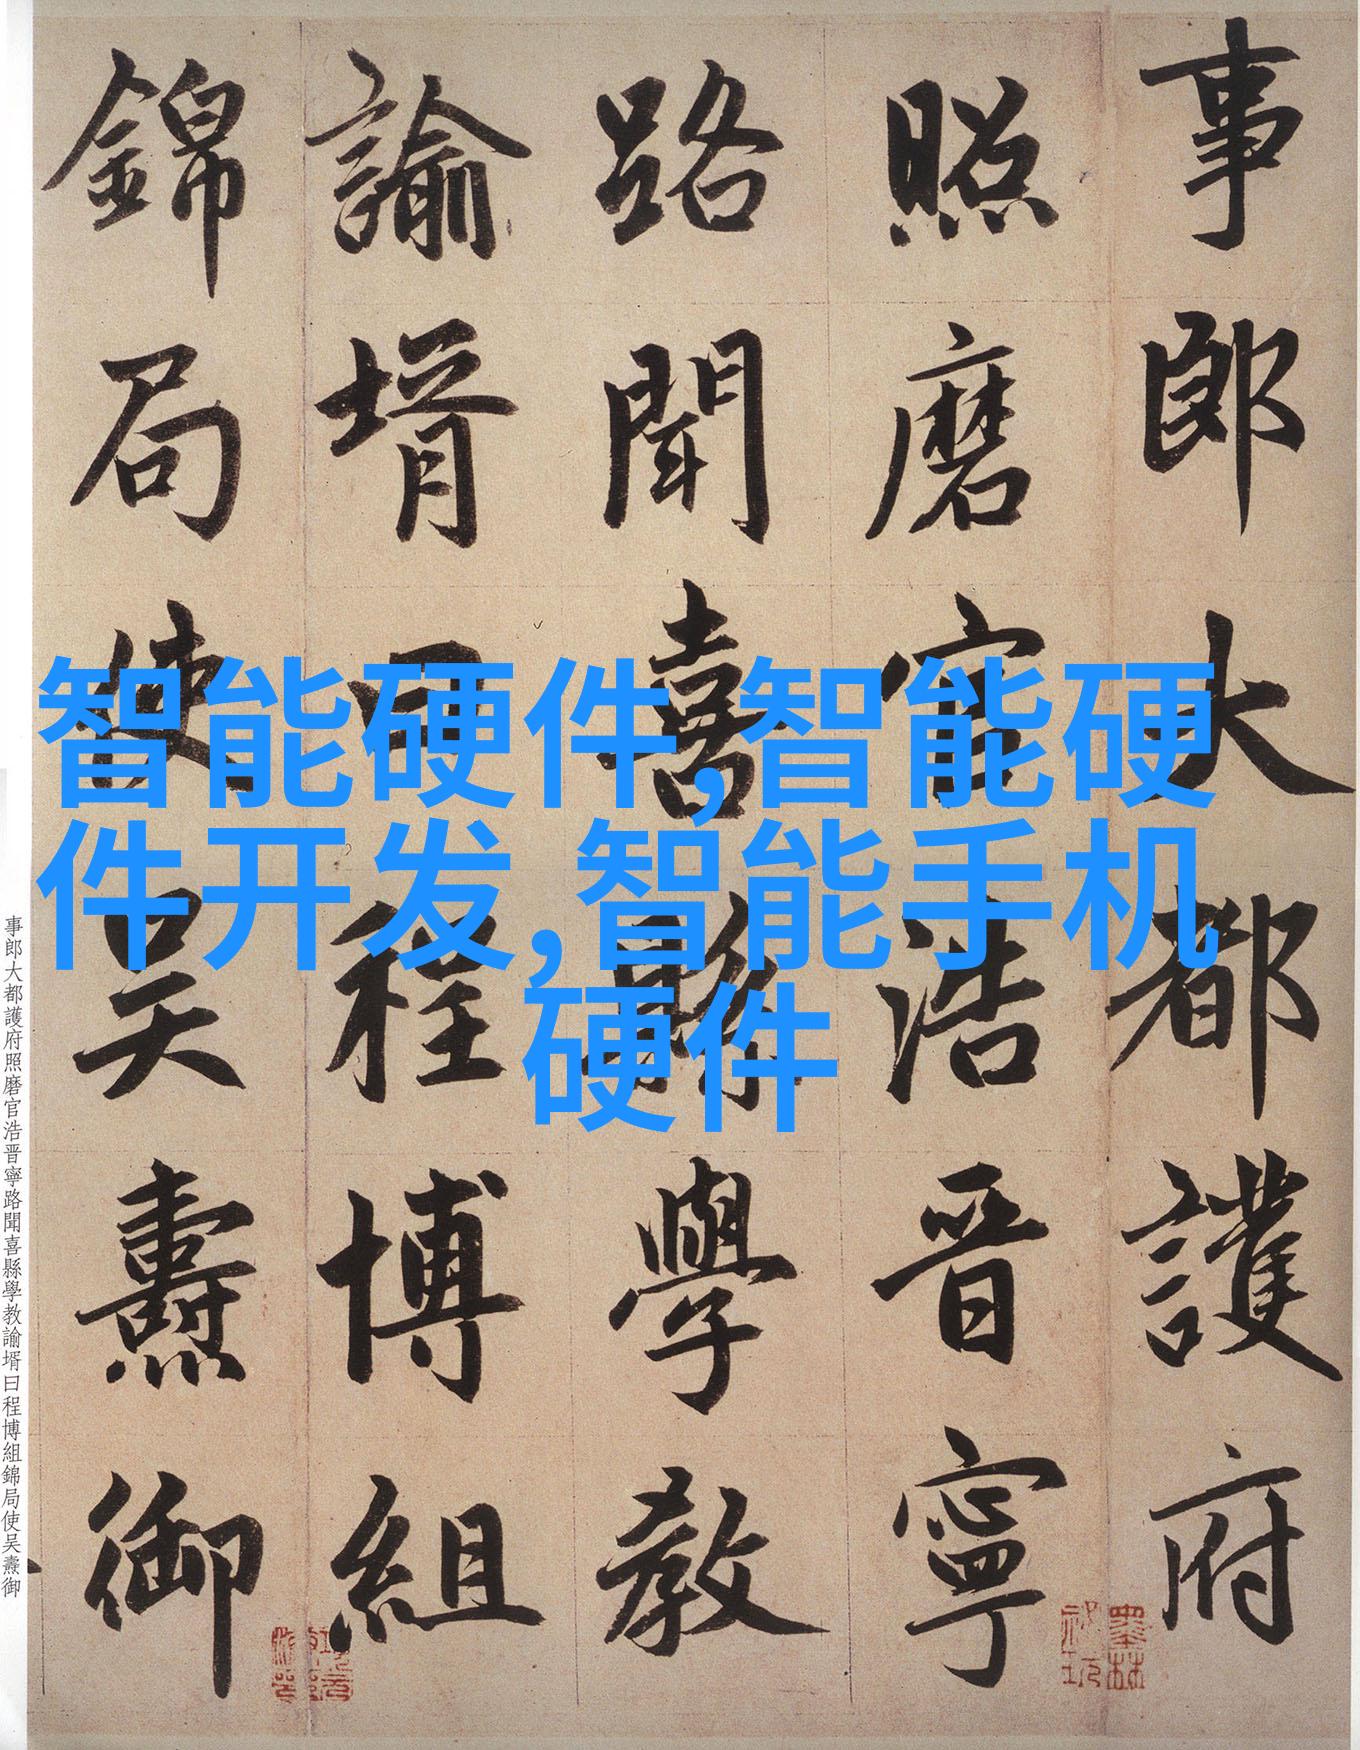 事郎大都護府
照磨官浩晋寧
路聞喜縣學教
諭壻曰程博組
錦局使吴燾御
智能硬件,智能硬
件开发,智能手机
硬件
事郎大都護府照磨官浩晋寧路聞喜縣學教諭壻曰程博組錦局使吴燾御